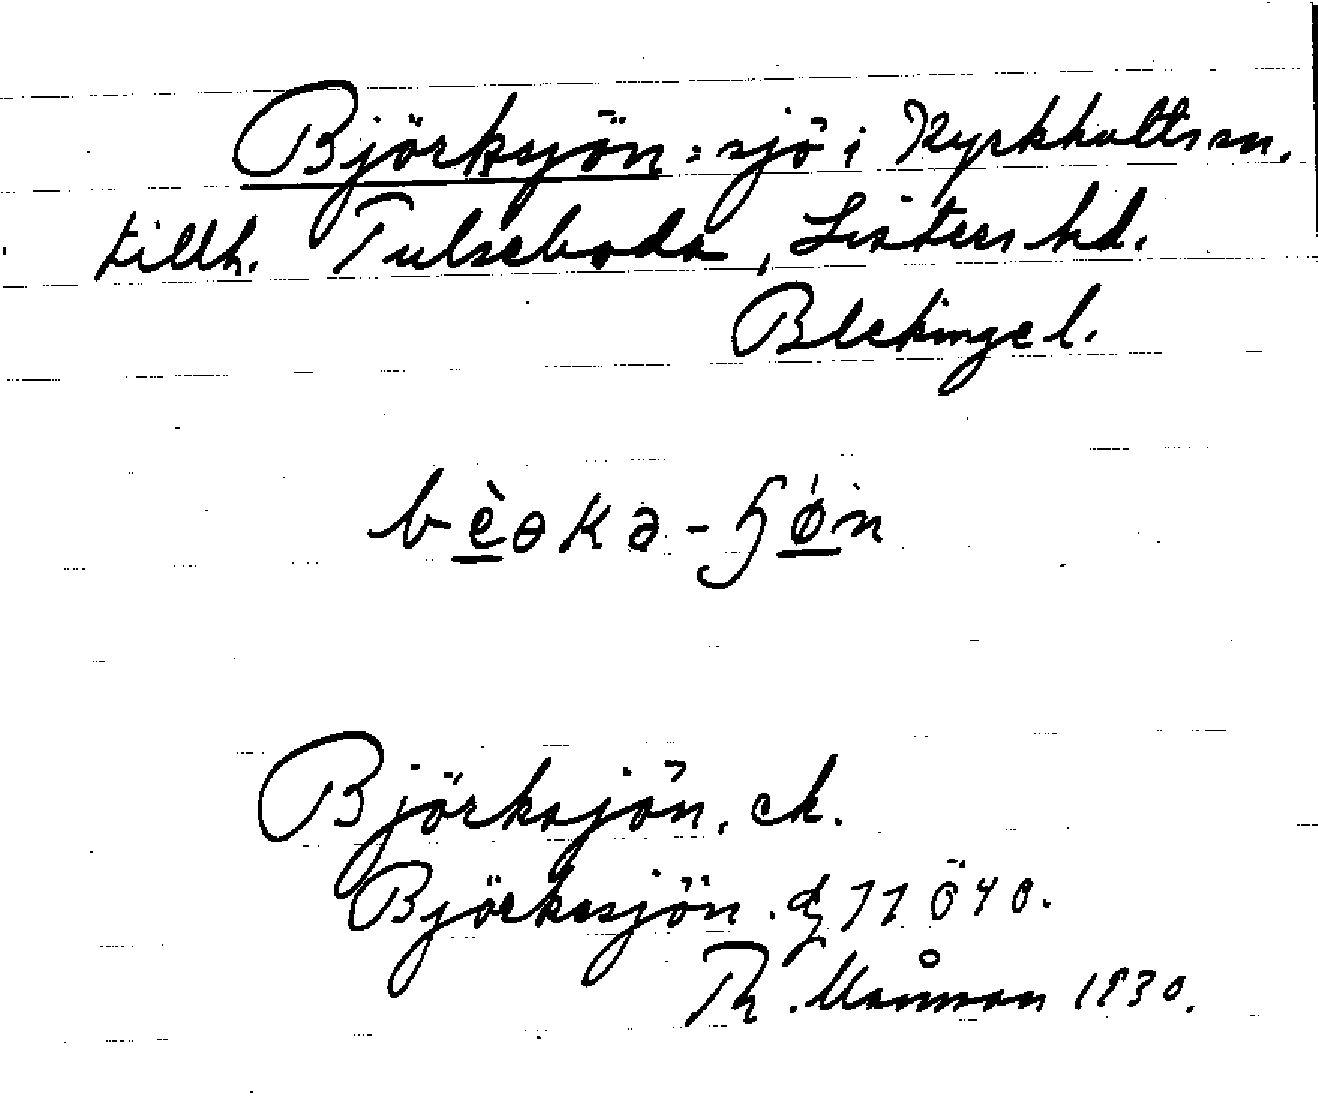 Björksjön: sjö i Kyrkhults sn.
tillh. Tulseboda, Listers hd.
Blekinge l.
bèɵkə-ɧǿn
Björksjön, ek.
Björkesjön. g 11 ö 40.
Th. Månman 1930.